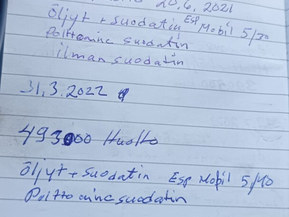 20.6.2021
Öljyt + suodatin Esp Mobil 5/30
Polttoaine suodatin
ilman suodatin
31.3.2022
493000 Huolto
Öljyt + suodatin Esp Mobil 5/30
Polttoainesuodatin